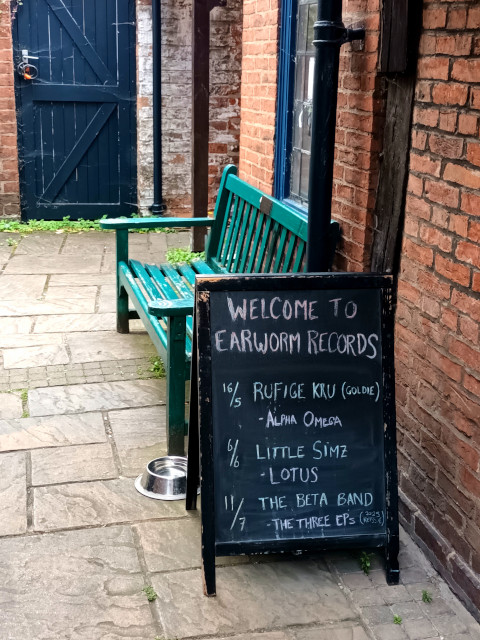 WELCOME TO
EARWORM RECORDS
16/5 RUFIGE KRU (GOLDIE)
- ALPHA OMEGA
6/6 LITTLE SIMZ
- LOTUS
11/7 THE BETA BAND
- THE THREE EPs (2025